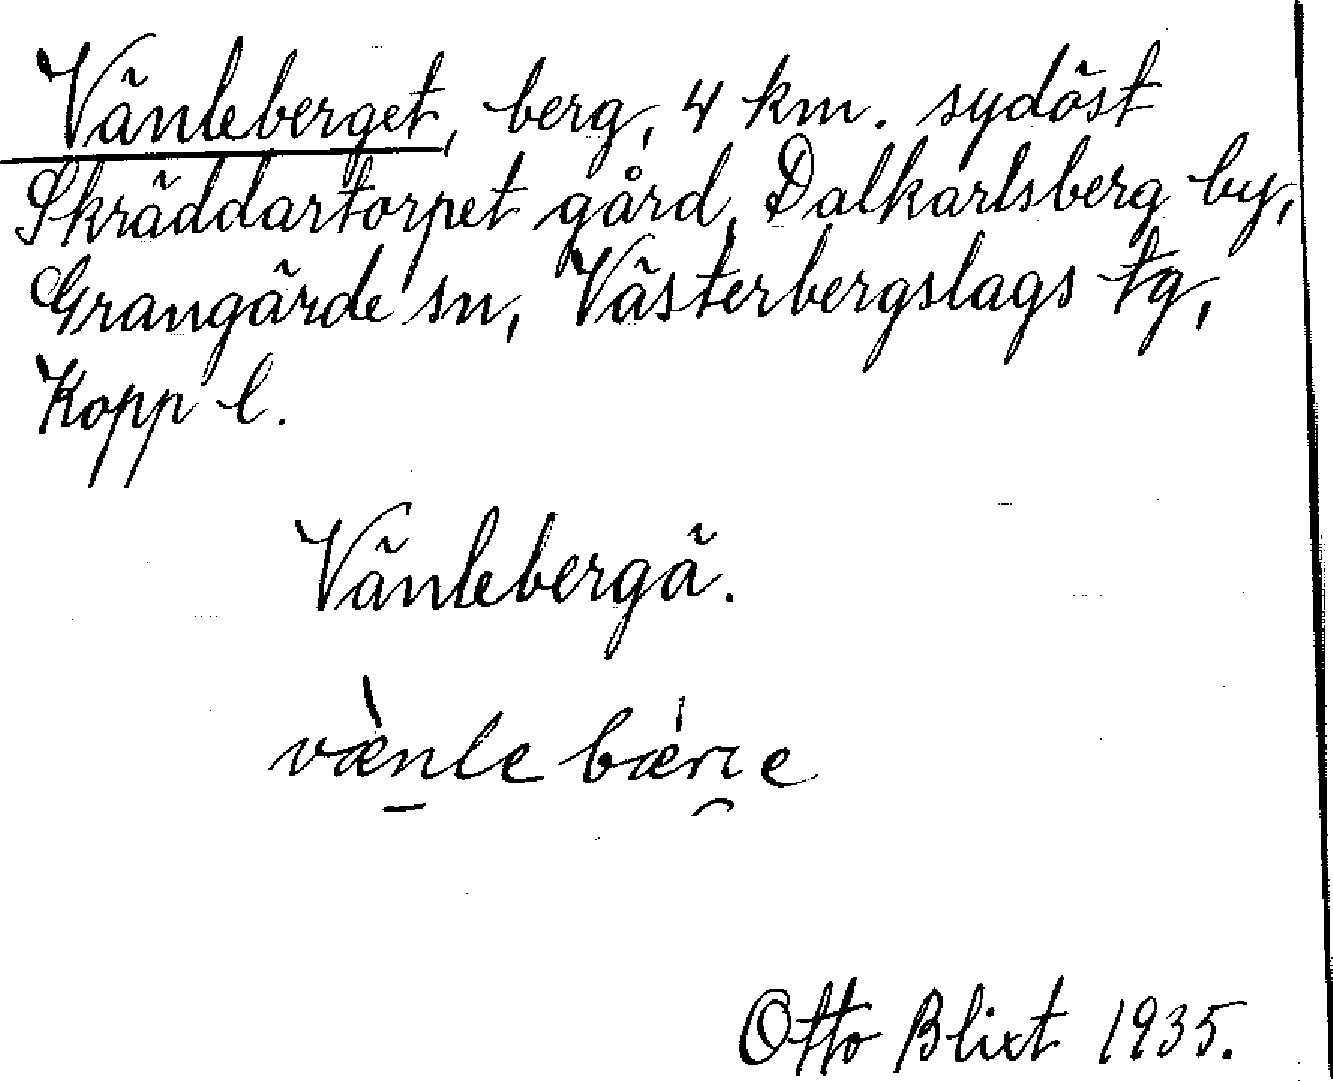 Vänleberget, berg, 4 km. sydöst
Skräddartorpet gård, Dalkarlsberg by,
Grangärde sn, Västerbergslags tg,
Kopp l.
Vänlebergä.
væ̀nle bǽrɪe
Otto Blixt 1935.